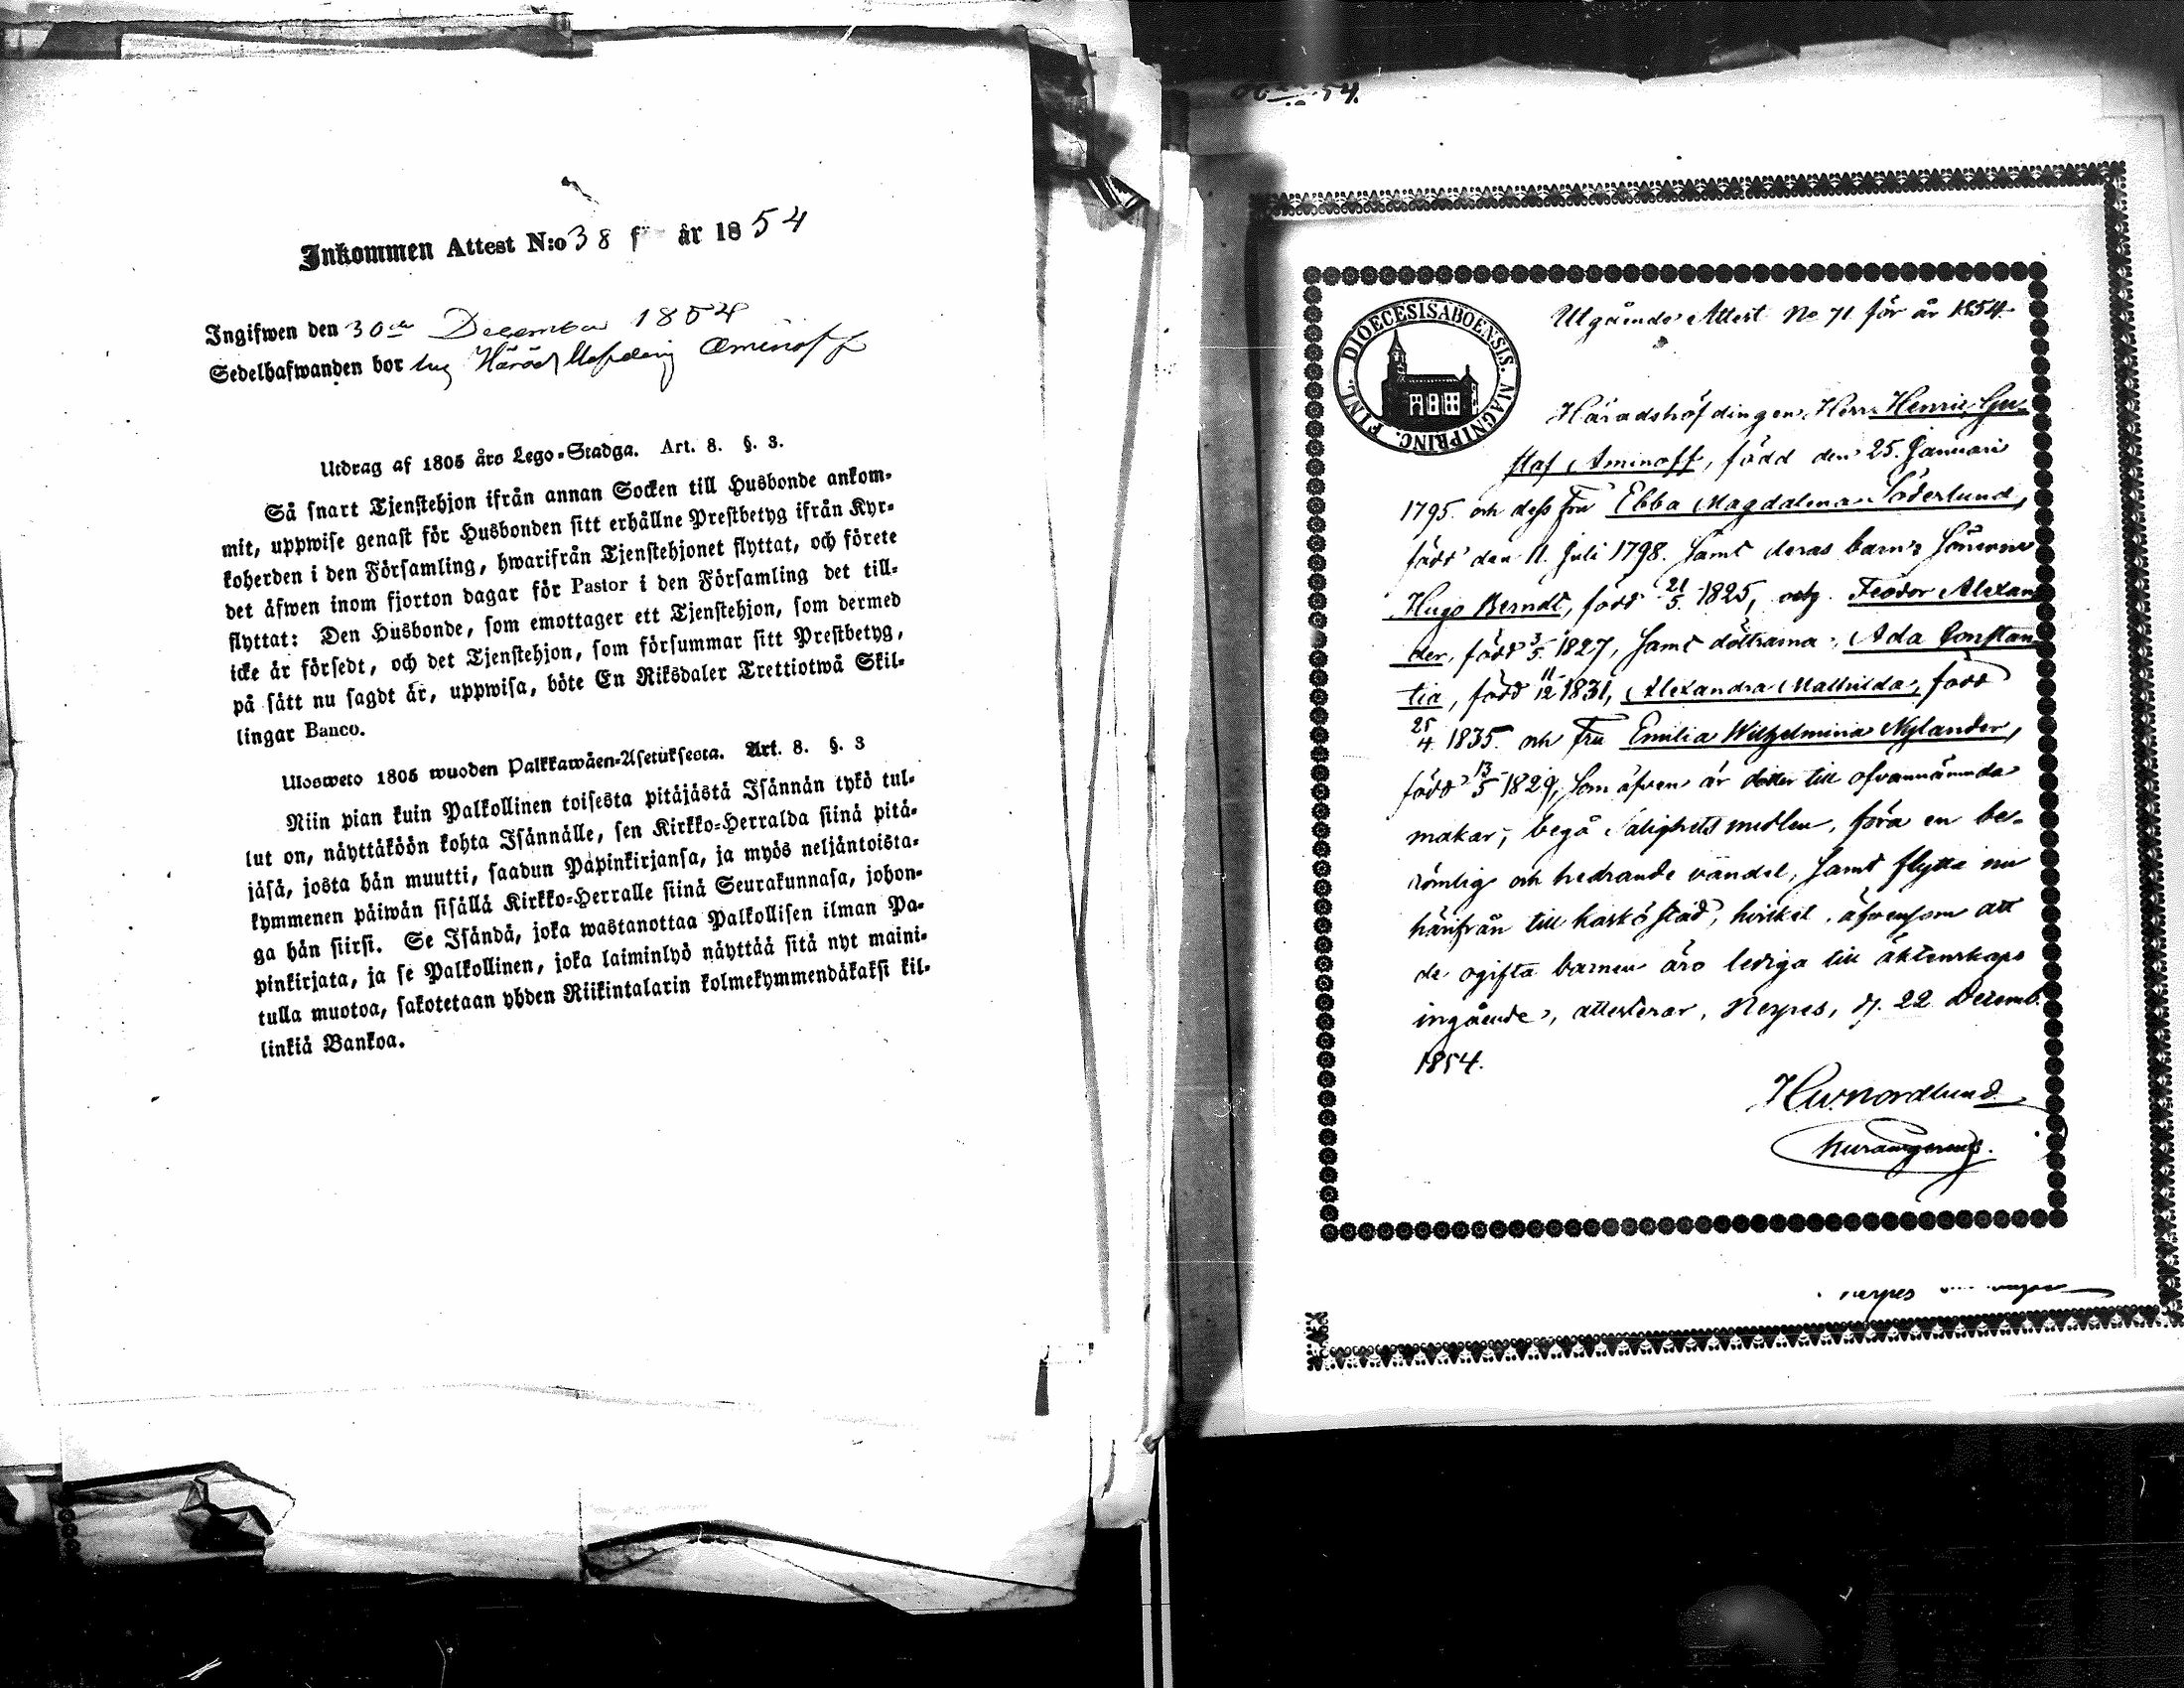 Inkommen Attest N:o 38 f år 1854
Ingifwen den 30de December 1854
Sedelhafwanden bor hug Härads Höfding Aminoff
Utdrag af 1805 års Lego-Stadga. Art. 8. §. 3.
Så snart Tjenstehjon ifrån annan Socken till Husbonde ankom-
mit, uppwise genast för Husbonden sitt erhållne Prestbetyg ifrån Kyr-
koherden i den Församling, hwarifrån Tjenstehjonet flyttat, och förete
det äfwen inom fjorton dagar för Pastor i den Församling det till-
flyttat: Den Husbonde, som emottager ett Tjenstehjon, som dermed
icke är försedt, och det Tjenstehjon, som försummar sitt Prestbetyg,
på sätt nu sagdt är, uppwisa, böte En Riksdaler Trettiotwå Skil-
lingar Banco.
Ulosweto 1805 wuoden Palkkawäen-Asetuksesta. Art. 8. §. 3
Niin pian kuin Palkollinen toisesta pitäjästä Isännän tykö tul-
lut on, näyttäköön kohta Isännälle, sen Kirkko-Herralda siinä pitä-
jäsä, josta hän muutti, saadun Papinkirjansa, ja myös neljäntoista-
kymmenen päiwän sisällä Kirkko-Herralle siinä Seurakunnasa, johon-
ga hän siirsi. Se Isändä, joka wastanottaa Palkollisen ilman Pa-
pinkirjata, ja se Palkollinen, joka laiminlyö näyttää sitä nyt maini-
tulla muotoa, sakotetaan yhden Riikintalarin kolmekymmendäkaksi kil-
linkiä Bankoa.
54.
FINL. DIOECESIS ABOENSIS. MAGNI PRINC.
Utgående Attest No 71 för år 1854.
Häradshöfdingen, Herr Henric Gu-
staf Aminoff, född den 25. Januari
1795. och dess Fru Ebba Magdalena Söderlund,
född den 11. Juli 1798. samt deras barn: Sönerne
Hugo Berndt, född 21/5. 1825, och Feodor Alexan
der, född 3/5. 1827, samt döttrarna: Ada Constan
tia, född 11/12 1831, Alexandra Mathilda, född
25/4 1835. och Fru Emilia Wilhelmina Nylander,
född 13/5 1829, som äfven är dotter till ofvannämnda
makar; begå salighets medlen, föra en be-
römlig och hedrande vandel, samt flytta nu
härifrån till Kaskö stad, hvilket, äfvensom att
de ogifta barnen äro lediga till äktenskaps
ingående, attesterar, Nerpes, d. 22 Decemb.
1854.
Nordlund
Nerpes